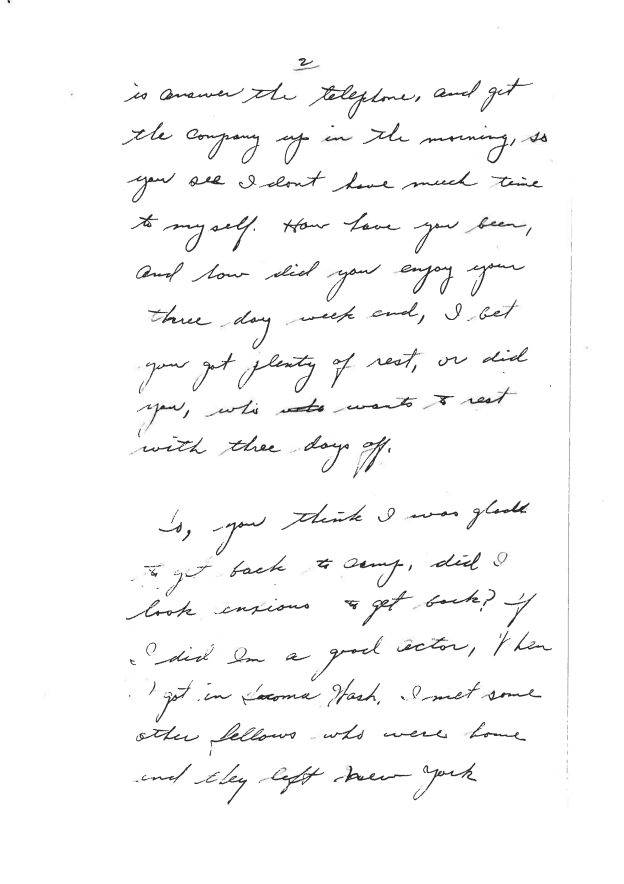 2
is answer the telephone, and get
the company up in the morning, so
you see I dont have much time
to myself. How have you been,
and how did you enjoy your
three day week end, I bet
you got plenty of rest, or did
you, who wants to rest
with three days off.
So, you think I was glad
to get back to camp, did I
look enxious to get back? If
I did Im a good actor, When
I got in Tacoma Wash. I met some
other fellows who were home
and they left New York